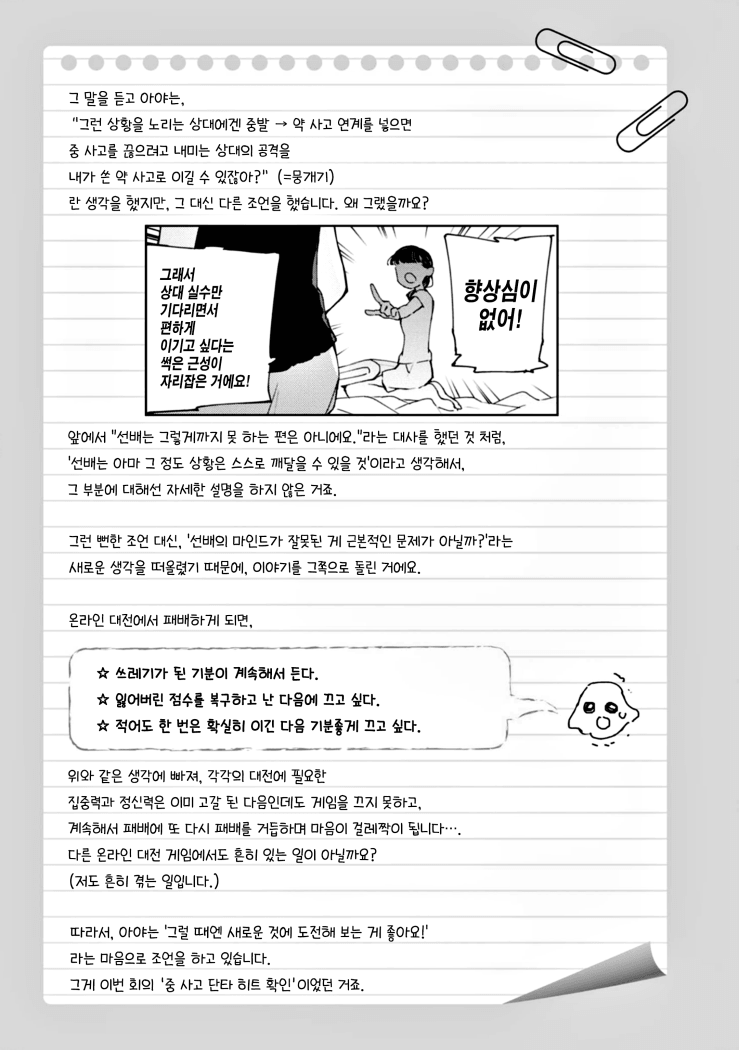 그 말을 듣고 아야는,
"그런 상황을 노리는 상대에겐 중발 → 약 사고 연계를 넣으면
중 사고를 끊으려고 내미는 상대의 공격을
내가 쓴 약 사고로 이길 수 있잖아?" (=뭉개기)
란 생각을 했지만, 그 대신 다른 조언을 했습니다. 왜 그랬을까요?
향상심이
없어!
그래서
상대 실수만
기다리면서
편하게
이기고 싶다는
썩은 근성이
자리잡은 거에요!
앞에서 "선배는 그렇게까지 못 하는 편은 아니에요."라는 대사를 했던 것 처럼,
'선배는 아마 그 정도 상황은 스스로 깨달을 수 있을 것'이라고 생각해서,
그 부분에 대해선 자세한 설명을 하지 않은 거죠.
그런 뻔한 조언 대신, '선배의 마인드가 잘못된 게 근본적인 문제가 아닐까?'라는
새로운 생각을 떠올렸기 때문에, 이야기를 그쪽으로 돌린 거에요.
온라인 대전에서 패배하게 되면,
☆ 쓰레기가 된 기분이 계속해서 든다.
☆ 잃어버린 점수를 복구하고 난 다음에 끄고 싶다.
☆ 적어도 한 번은 확실히 이긴 다음 기분좋게 끄고 싶다.
위와 같은 생각에 빠져, 각각의 대전에 필요한
집중력과 정신력은 이미 고갈 된 다음인데도 게임을 끄지 못하고,
계속해서 패배에 또 다시 패배를 거듭하며 마음이 걸레짝이 됩니다….
다른 온라인 대전 게임에서도 흔히 있는 일이 아닐까요?
(저도 흔히 겪는 일입니다.)
따라서, 아야는 '그럴 때엔 새로운 것에 도전해 보는 게 좋아요!'
라는 마음으로 조언을 하고 있습니다.
그게 이번 회의 '중 사고 단타 히트 확인'이었던 거죠.